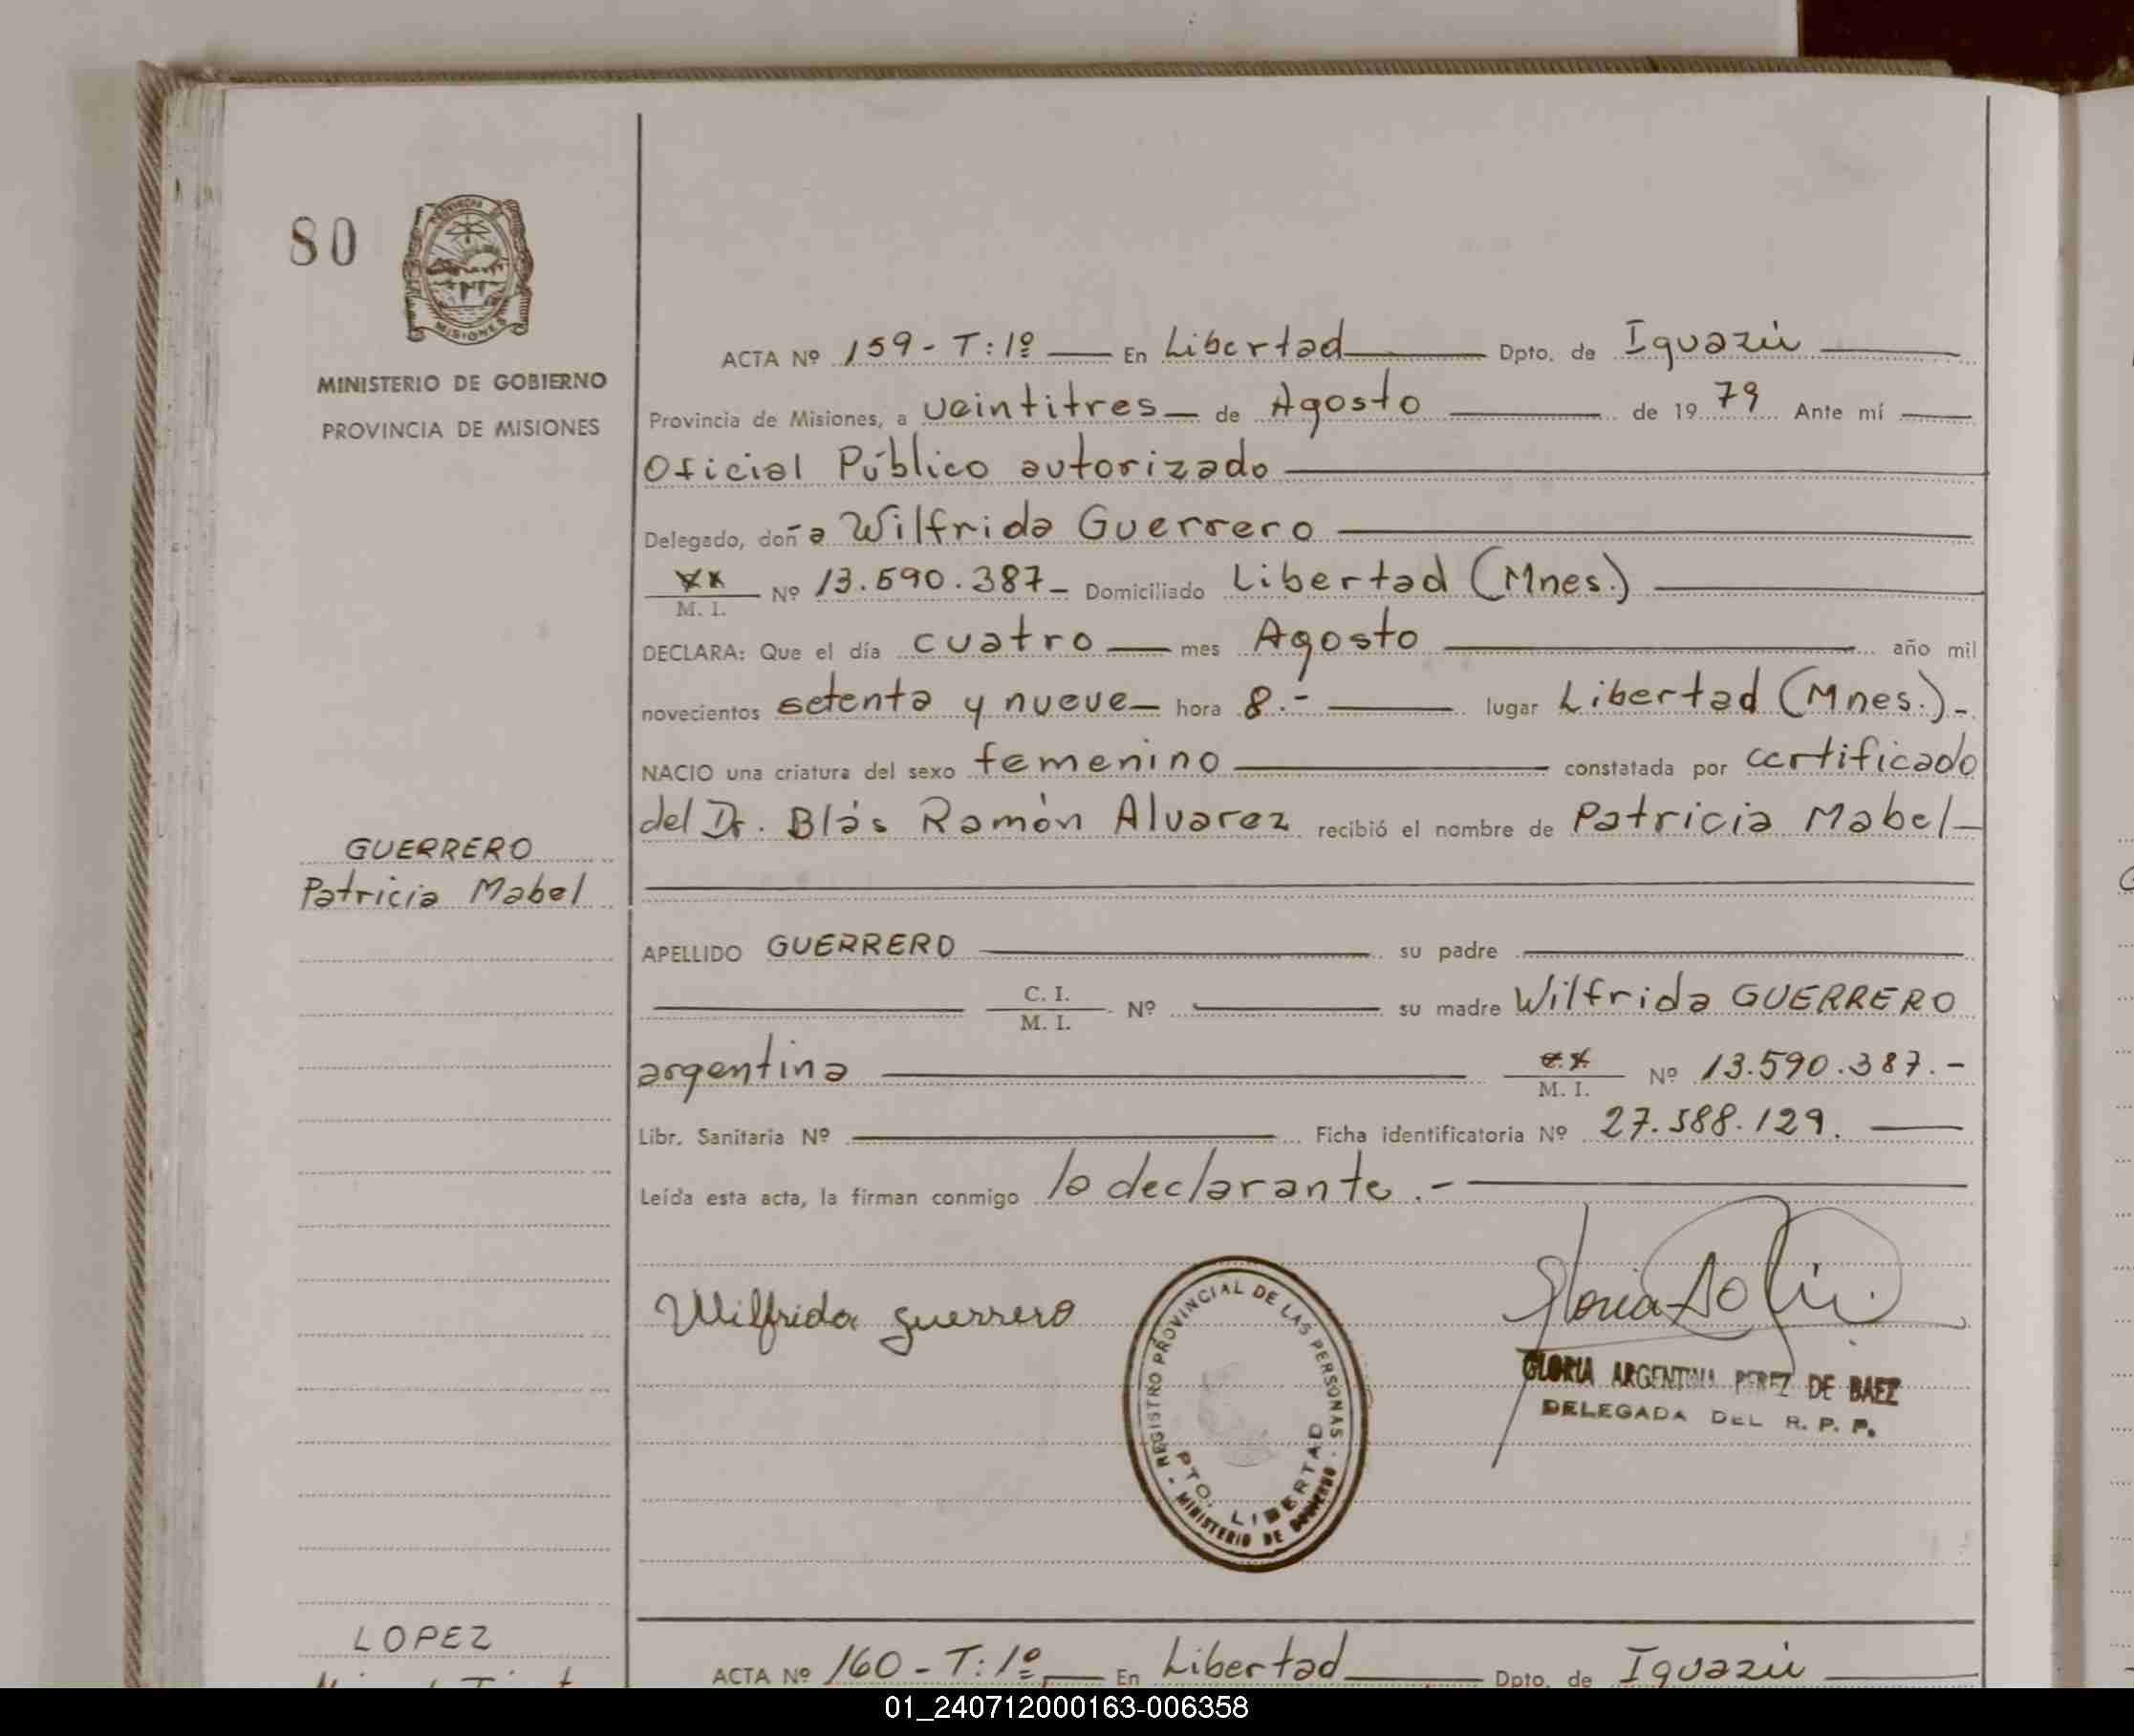 80
PROVINCIA DE
MISIONES
MINISTERIO DE GOBIERNO
PROVINCIA DE MISIONES
ACTA Nº 159 - T: 1º En Libertad Dpto. de Iguazú
Provincia de Misiones, a veintitres de Agosto de 19 79 Ante mí
Oficial Público autorizado
Delegado, doña Wilfrida Guerrero
M. I. Nº 13.590.387 - Domiciliado Libertad (Mnes.)
DECLARA: Que el día cuatro mes Agosto año mil
novecientos setenta y nueve hora 8.- lugar Libertad (Mnes.) -
NACIO una criatura del sexo femenino constatada por certificado
del Dr. Blás Ramón Alvarez recibió el nombre de Patricia Mabel
GUERRERO
Patricia Mabel
APELLIDO GUERRERO su padre
C. I.
M. I. Nº su madre Wilfrida GUERRERO
argentina M. I. Nº 13.590.387.-
Libr. Sanitaria Nº Ficha identificatoria Nº 27.588.129.
Leída esta acta, la firman conmigo la declarante.-
Wilfrida Guerrero
REGISTRO PROVINCIAL DE LAS PERSONAS
PTO. LIBERTAD
MINISTERIO DE GOBIERNO
GLORIA ARGENTINA PEREZ DE BAEZ
DELEGADA DEL R. P. P.
LOPEZ
ACTA Nº 160 - T: 1º En Libertad Dpto. de Iguazú
01_240712000163-006358